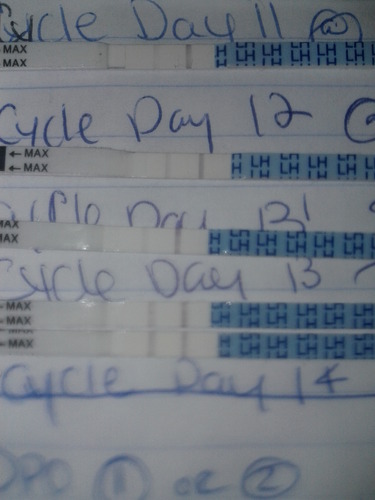 Cycle Day 11
MAX LH LH LH LH LH
MAX
Cycle Day 12
← MAX LH LH LH LH LH
← MAX
Cycle Day 13
MAX LH LH LH LH LH LH
MAX
Cycle Day 13
MAX LH LH LH LH LH LH
MAX
MAX LH LH LH LH LH
Cycle Day 14
DPO 1 or 2